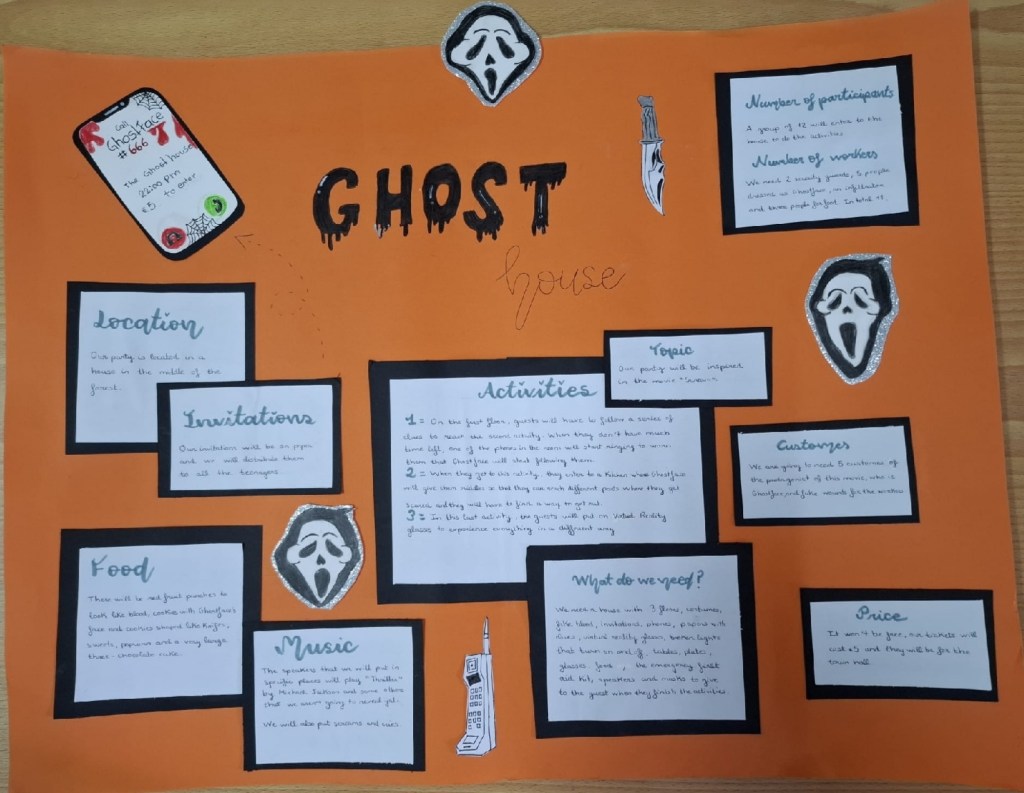 Call
GhostFace
#666
The Ghost house
22:00 pm
€5 to enter
GHOST
house
Number of participants
A group of 12 will enter to the
house to do the activities
Number of workers
We need 2 security guards, 5 people
dressed as Ghostface, an infiltrator
and three people for food. In total 11.
Location
Our party is located in a
house in the middle of the
forest.
Invitations
Our invitations will be on paper
and we will distribute them
to all the teenagers.
Topic
Our party will be inspired
in the movie "Scream"
Activities
1= On the first floor, guests will have to follow a series of
clues to reach the second activity. When they don't have much
time left, one of the phones in the room will start ringing to warn
them that Ghostface will start following them.
2= When they get to this activity, they enter to a kitchen where Ghostface
will give them riddles so that they can reach different parts where they get
scared and they will have to find a way to get out.
3= In this last activity, the guests will put on Virtual Reality
glasses to experience everything in a different way
Customes
We are going to need 5 customes of
the protagonist of this movie, who is
Ghostface, and fake wounds for the
Food
There will be red fruit punches to
look like blood, cookies with Ghostface's
face and cookies shaped like knifes,
sweets, popcorn and a very large
three-chocolate cake.
Music
The speakers that we will put in
specific places will play "Thriller"
by Michael Jackson and some others
that we aren't going to reveal yet.
We will also put screams and cries
What do we need?
We need a house with 3 floors, costumes,
fake blood, invitations, phones, papers with
clues, virtual reality glasses, lights
that turn on and off, tables, plates,
glasses, food, the emergency first
aid kit, speakers and masks to give
to the guest when they finish the activities.
Price
It won't be free, our tickets will
cost €5 and they will be for the
town hall